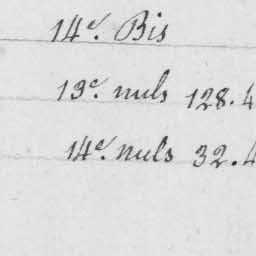 14e. Bis
13e. nuls 128.4
14e. nuls 32.4